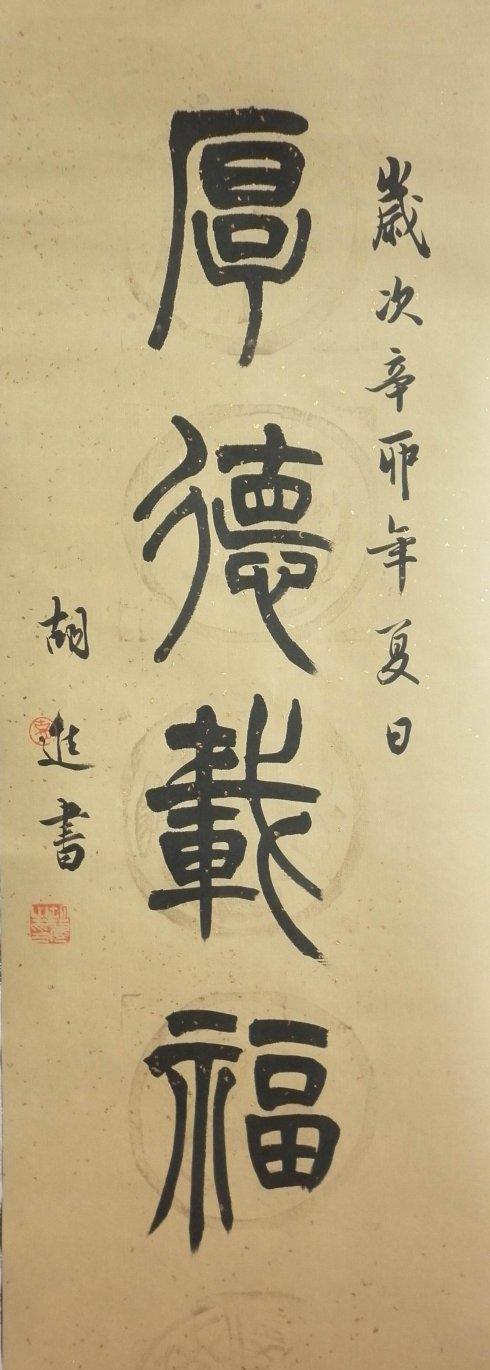 歲次辛卯年夏日
厚德載福
胡進書